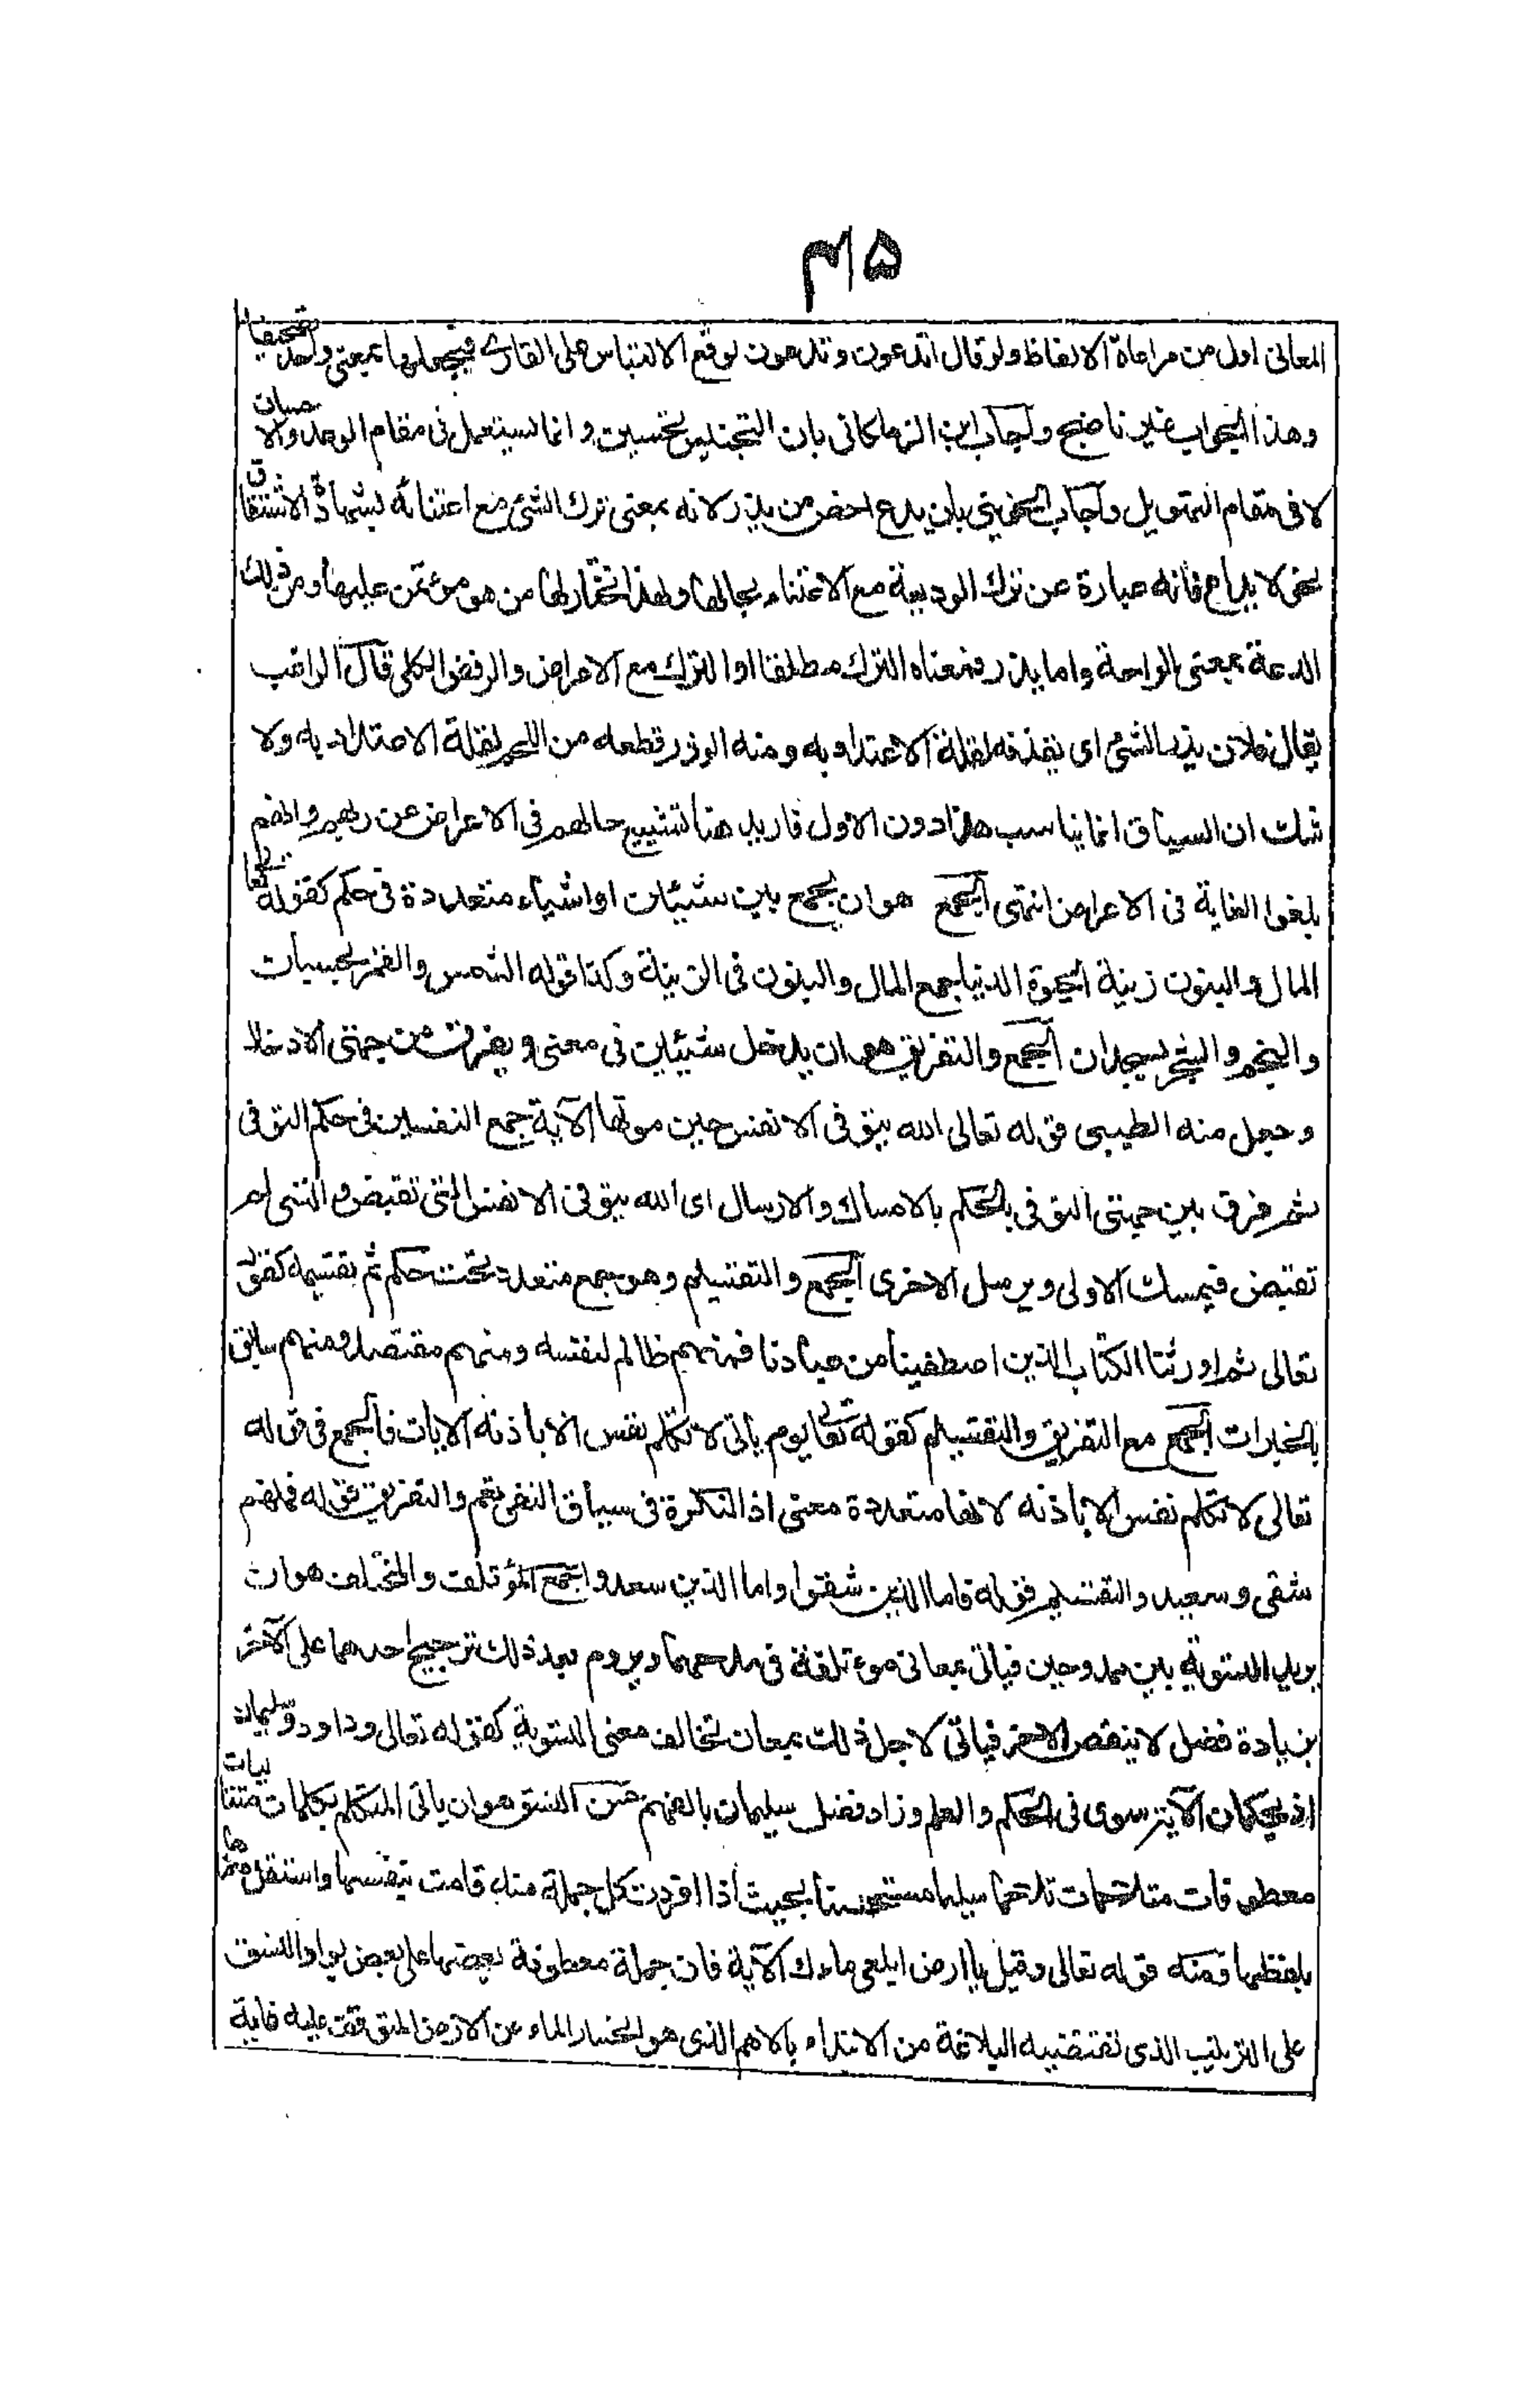 ۴۱۵
المعانى اولى من مراعاة الالفاظ ولو قال اتدعون وتدعون لوقع الالتباس على القارى فيجعلهما بمعنى واحد تصحيفا
وهذا الجواب غير ناضج واجاب ابن الزملكانى بان التجنيس تحسين وانما يستعمل فى مقام الوعد والاحسان
لا فى مقام التهويل واجاب الخويتى بان يدع اخص من يذر لانه بمعنى ترك الشئ مع اعتنائه بشهادة الاشتقاق
نحو الايداع فانه عبارة عن ترك الوديعة مع الاعتناء بحالها ولهذا تختار لها من هو مؤتمن عليها ومن ذلك
الدعة بمعنى الراحة واما يذر فمعناه الترك مطلقا او الترك مع الاعراض والرفض الكلى قال الراغب
يقال فلان يذر الشئ اى يقذفه لقلة الاعتداد به ومنه الوذر قطعه من اللحم لقلة الاعتداد به ولا
شك ان السياق انما يناسب هذا دون الاول فاريد هنا تشبيع حالهم فى الاعراض عن ربهم وانهم
بلغوا الغاية فى الاعراض انتهى الجمع هو ان يجمع بين شيئين او اشياء متعددة فى حكم كقوله تعالى
المال والبنون زينة الحيوة الدنيا جمع المال والبنون فى الزينة وكذا قوله الشمس والقمر بحسبان
والنجم والشجر يسجدان الجمع والتفريق هو ان يدخل شيئين فى معنى ويفرق بين جهتى الادخال
وجعل منه الطيبى قوله تعالى الله يتوفى الانفس حين موتها الآية جمع النفسين فى حكم التوفى
ثم فرق بين جهتى التوفى بالحكم بالامساك والارسال اى الله يتوفى الانفس التى تقبض والتى لم
تقبض فيمسك الاولى ويرسل الاخرى الجمع والتقسيم وهو جمع متعدد تحت حكم ثم تقسيمه كقوله
تعالى ثم اورثنا الكتاب الذين اصطفينا من عبادنا فمنهم ظالم لنفسه ومنهم مقتصد ومنهم سابق
بالخيرات الجمع مع التفريق والتقسيم كقوله تعالى يوم يأتى لا تكلم نفس الا باذنه الايات فالجمع فى قوله
تعالى لا تكلم نفس الا باذنه لانها متعددة معنى اذ النكرة فى سياق النفى تعم والتفريق قوله فمنهم
شقى وسعيد والتقسيم قوله فاما الذين شقوا واما الذين سعدوا جمع المؤتلف والمختلف هو ان
يريد التسوية بين ممدوحين فياتى بمعانى موءتلفة فى مدحهما ويروم بعد ذلك ترجيح احدهما على الآخر
بزيادة فضل لا ينقص الاخر فياتى لاجل ذلك بمعان تخالف معنى التسوية كقوله تعالى وداود وسليمان
اذ يحكمان الآية سوى فى الحكم والعلم وزاد فضل سليمان بالفهم حسن النسق هو ان ياتى المتكلم بكلمات متتاليات
معطوفات متلاحمات تلاحما سليما مستحسنا بحيث اذا افردت كل جملة منه قامت بنفسها واستقل معناها
بلفظها ومنه قوله تعالى وقيل يا ارض ابلعى ماءك الآية فان جملة معطوفة بعضها على بعض بواو النسق
على الترتيب الذى تقتضيه البلاغة من الابتداء بالاهم الذى هو انحسار الماء عن الارض المتوقف عليه غاية